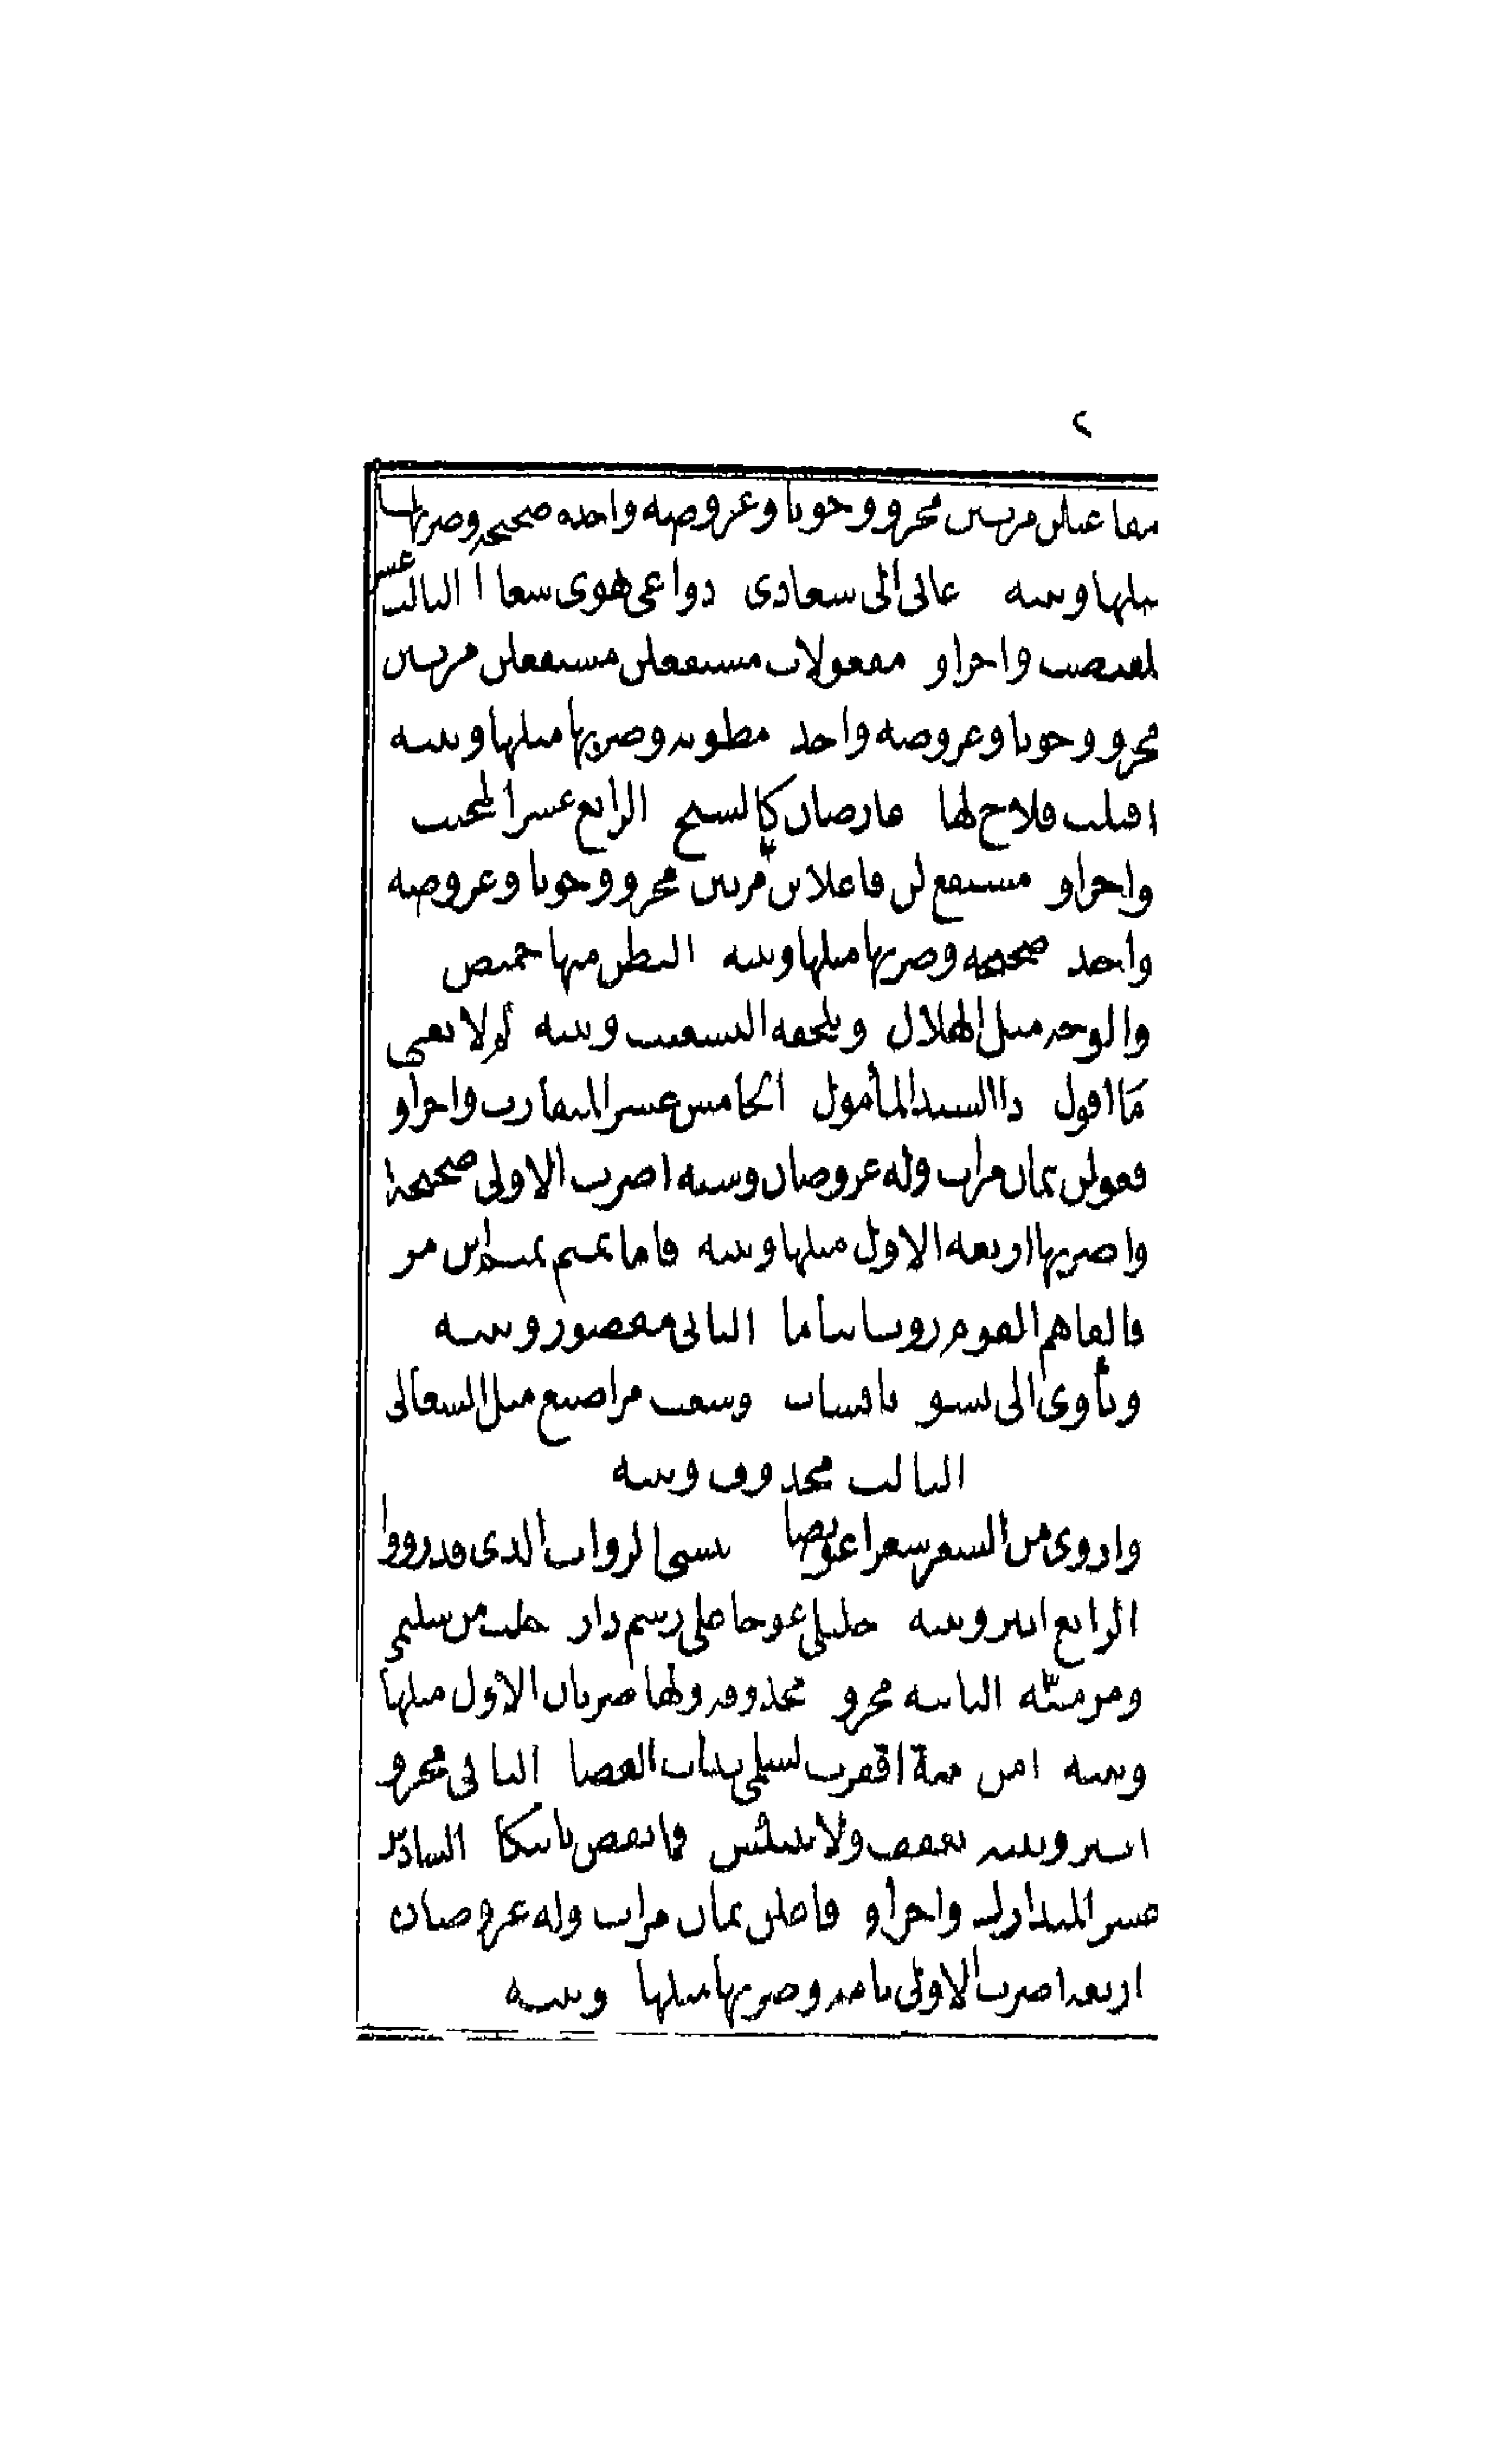 ٢
مفاعيلن مرتين مجزو وجوبا وعروضه واحده صحيحه وضربها
مثلها وبيته دعاني الى سعادى دواعى هوى سعادا الثالث عشر
المقتضب واجزاو مفعولات مستفعلن مستفعلن مرتين
مجزو وجوبا وعروضه واحد مطويه وضربها مثلها وبيته
اقبلت فلاح لها عارضان كالسبح الرابع عشر المجتث
واجزاو مستفع لن فاعلاتن مرتين مجزو وجوبا وعروضه
واحد صحيحه وضربها مثلها وبيته البطن منها خميص
والوجه مثل الهلال ويلحقه التشعيث وبيته لم لا يعى
ما اقول ذا السيد المأمول الخامس عشر المتقارب واجزاو
فعولن ثمان مرات وله عروضان وسته اضرب الاولى صحيحة
واضربها اربعه الاول مثلها وبيته فاما تميم تميم ابن مر
فالفاهم القوم روبا نياما الثانى مقصور وبيته
ويأوى الى نسو بائسات وشعث مراضيع مثل السعالى
الثالث محذوف وبيته
واروى من الشعر شعرا عويصا ينسى الرواة الذى قد رووا
الرابع ابتر وبيته خليلى عوجا على رسم دار خلت من سليمى
ومن ميّه الثانيه مجزو محذوفه ولها ضربان الاول مثلها
وبيته امن دمنة اقفرت لسلمى بذات الغضا الثانى مجزو
ابتر وبيته تعفف ولا تبتئس فما يقض يأتيكا السادس
عشر المتدارك واجزاو فاعلن ثمان مرات وله عروضان
اربعه اضرب الاولى تامه وضربها مثلها وبيته